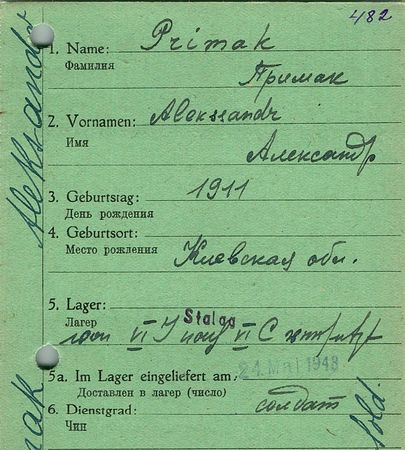 482
1. Name: Primak
Фамилия
Примак
2. Vornamen: Aleksandr
Имя
Александр
3. Geburtstag: 1911
День рождения
4. Geburtsort:
Место рождения Киевская обл.
5. Lager: Stalag
Лагер von VI J nach VI C
24. Mai 1943
5a. Im Lager eingeliefert am:
Доставлен в лагер (число)
6. Dienstgrad: солдат
Чин
Aleksandr
Sold